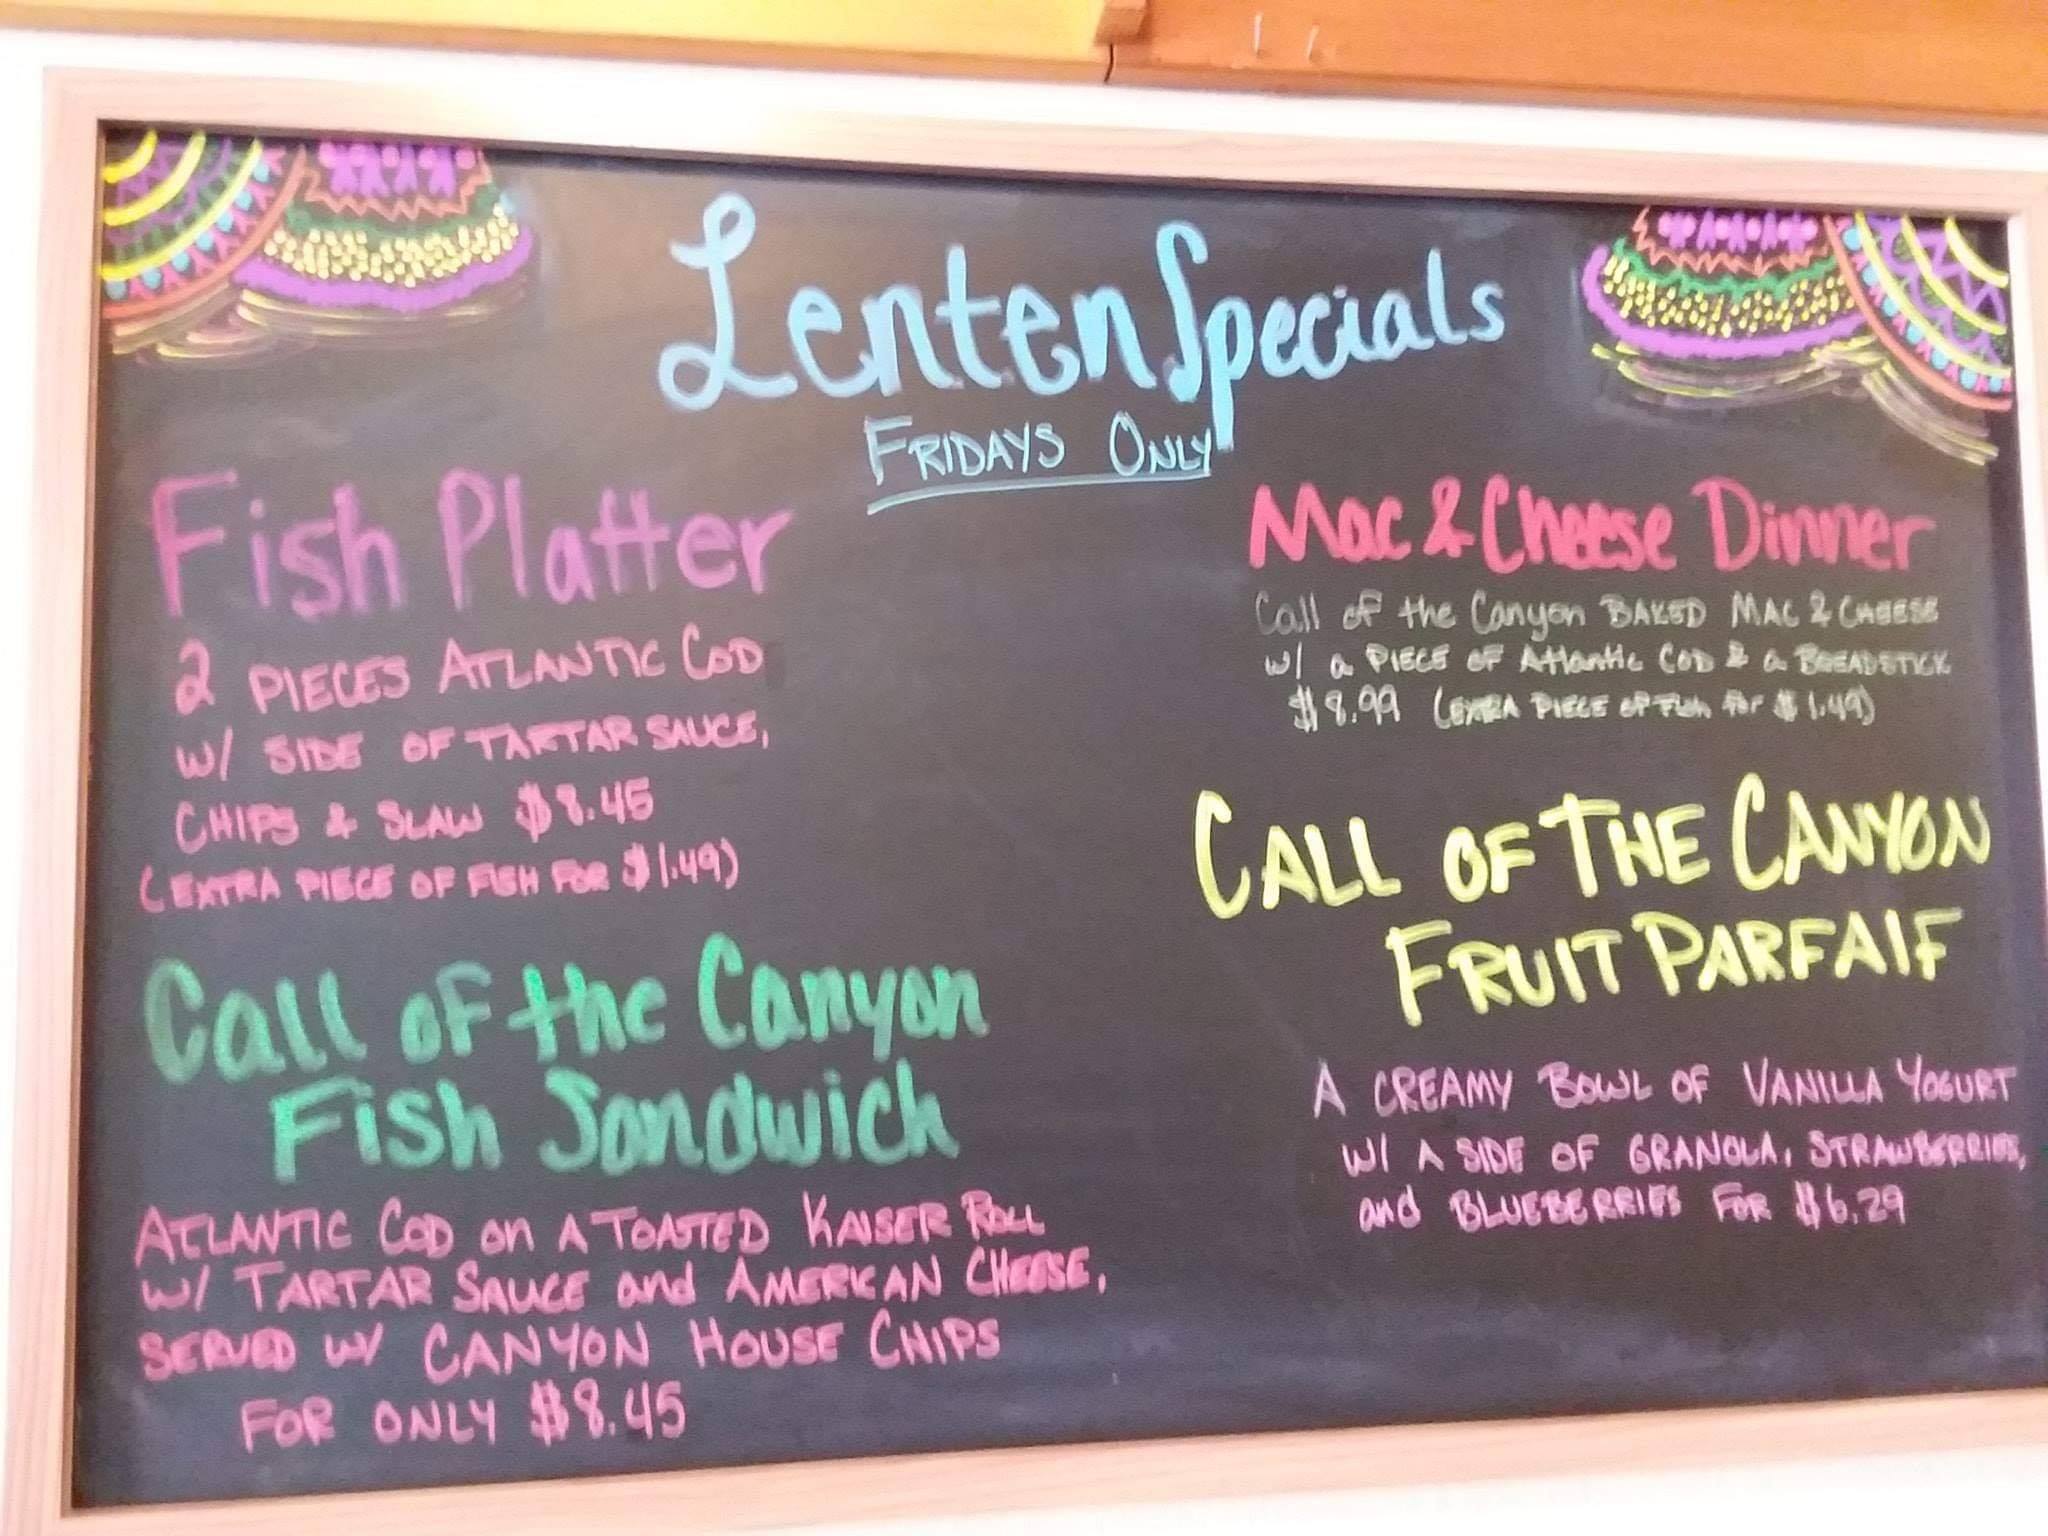 Lenten Specials
FRIDAYS ONLY
Fish Platter
2 PIECES ATLANTIC COD
W/ SIDE OF TARTAR SAUCE,
CHIPS & SLAW $8.45
(EXTRA PIECE OF FISH FOR $1.49)
Call of the Canyon
Fish Sandwich
ATLANTIC COD on A TOASTED KAISER ROLL
W/ TARTAR SAUCE and AMERICAN CHEESE,
SERVED W/ CANYON HOUSE CHIPS
FOR ONLY $8.45
Mac & Cheese Dinner
Call of the Canyon BAKED MAC & CHEESE
W/ a PIECE OF Atlantic COD & a BREADSTICK
$8.99 (EXTRA PIECE OF FISH for $1.49)
CALL OF THE CANYON
FRUIT PARFAIT
A CREAMY BOWL OF VANILLA YOGURT
W/ A SIDE OF GRANOLA, STRAWBERRIES,
and BLUEBERRIES FOR $6.29